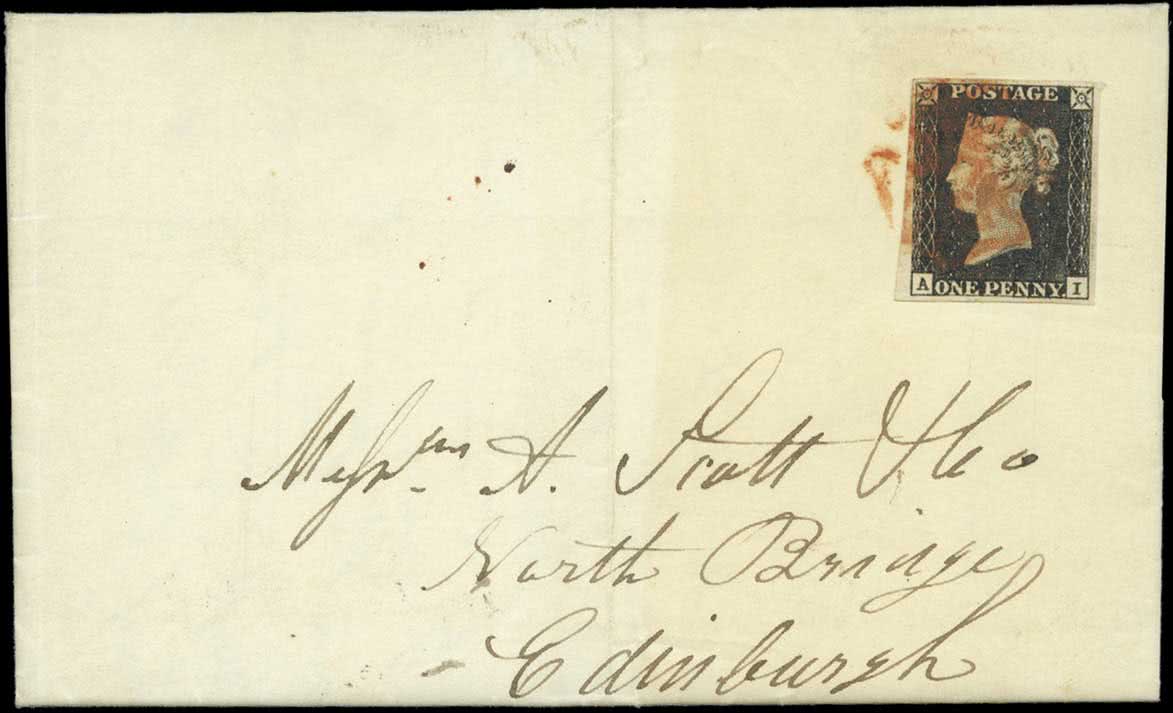 POSTAGE
A ONE PENNY. I
Messrs A. Scott & Co
North Bridge
Edinburgh